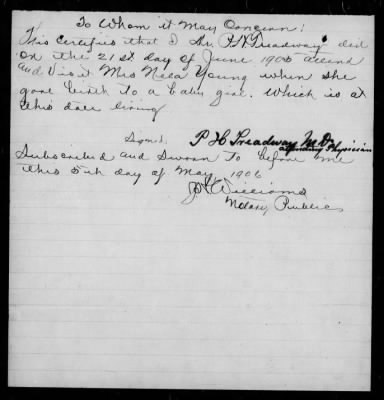 To Whom it May Concern:
This Certifies that I Dr P.H. Treadway did
on the 21st day of June 1905 attend
and Visit Mrs Nela Young when she
gave birth to a baby girl. Which is at
this date living
Signed. P H Treadway M.D.
attending Physician
Subscribed and Sworn To before me
this 5th day of May 1906
Williams
Notary Public